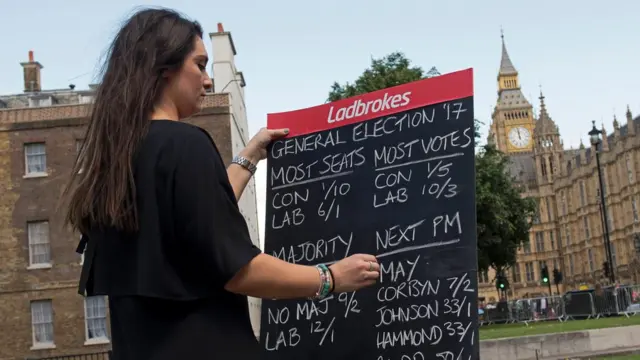 Ladbrokes
GENERAL ELECTION '17
MOST SEATS
CON 1/10
LAB 6/1
MOST VOTES
CON 1/5
LAB 10/3
MAJORITY
NO MAJ 9/2
LAB 12/1
NEXT PM
MAY
CORBYN 7/2
JOHNSON 33/1
HAMMOND 33/1